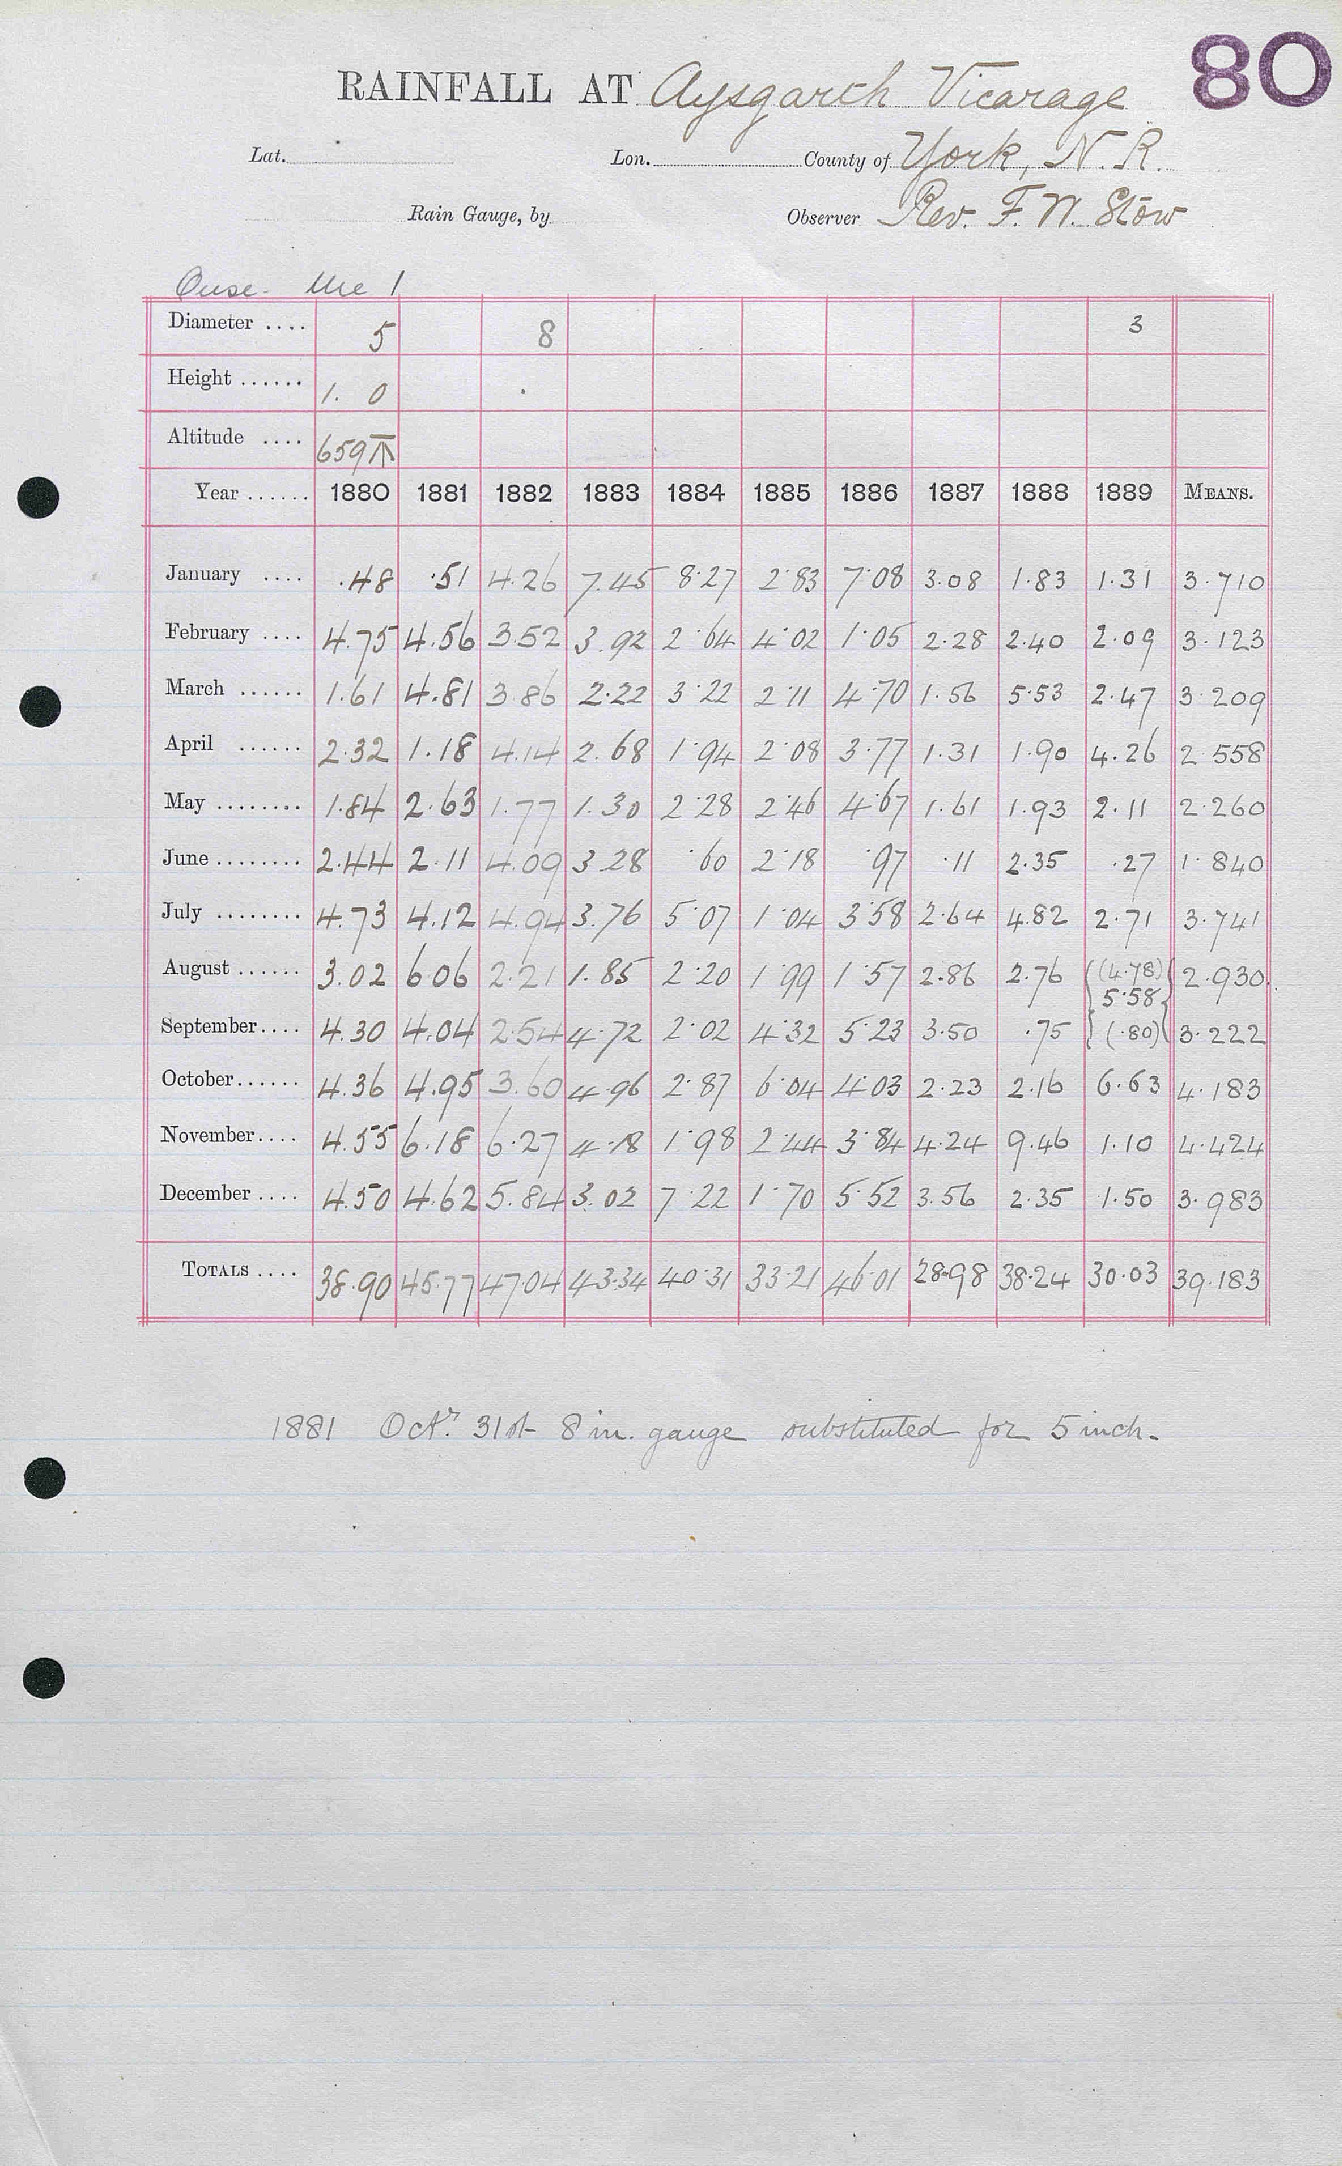 80
RAINFALL AT Aysgarth Vicarage
Lat. Lon. County of York, N. R.
Rain Gauge, by Observer Rev. F. W. Stow
Ouse - Ure 1
Diameter .... 5 8 3
Height ...... 1. 0
Altitude .... 659
Year ...... 1880 1881 1882 1883 1884 1885 1886 1887 1888 1889 MEANS.
January .... .48 .51 4.26 7.45 8.27 2.83 7.08 3.08 1.83 1.31 3.710
February .... 4.75 4.56 3.52 3.92 2.64 4.02 1.05 2.28 2.40 2.09 3.123
March ...... 1.61 4.81 3.86 2.22 3.22 2.11 4.70 1.56 5.53 2.47 3.209
April ...... 2.32 1.18 4.14 2.68 1.94 2.08 3.77 1.31 1.90 4.26 2.558
May ........ 1.84 2.63 1.77 1.30 2.28 2.46 4.67 1.61 1.93 2.11 2.260
June ........ 2.44 2.11 4.09 3.28 .60 2.18 .97 .11 2.35 .27 1.840
July ........ 4.73 4.12 4.94 3.76 5.07 1.04 3.58 2.64 4.82 2.71 3.741
August ...... 3.02 6.06 2.21 1.85 2.20 1.99 1.57 2.86 2.76 (4.78) 2.930
5.58
September.... 4.30 4.04 2.54 4.72 2.02 4.32 5.23 3.50 .75 (.80) 3.222
October...... 4.36 4.95 3.60 4.96 2.87 6.04 4.03 2.23 2.16 6.63 4.183
November.... 4.55 6.18 6.27 4.18 1.98 2.44 3.84 4.24 9.46 1.10 4.424
December .... 4.50 4.62 5.84 3.02 7.22 1.70 5.52 3.56 2.35 1.50 3.983
TOTALS .... 38.90 45.77 47.04 43.34 40.31 33.21 46.01 28.98 38.24 30.03 39.183
1881 Octr. 31st 8 in. gauge substituted for 5 inch.